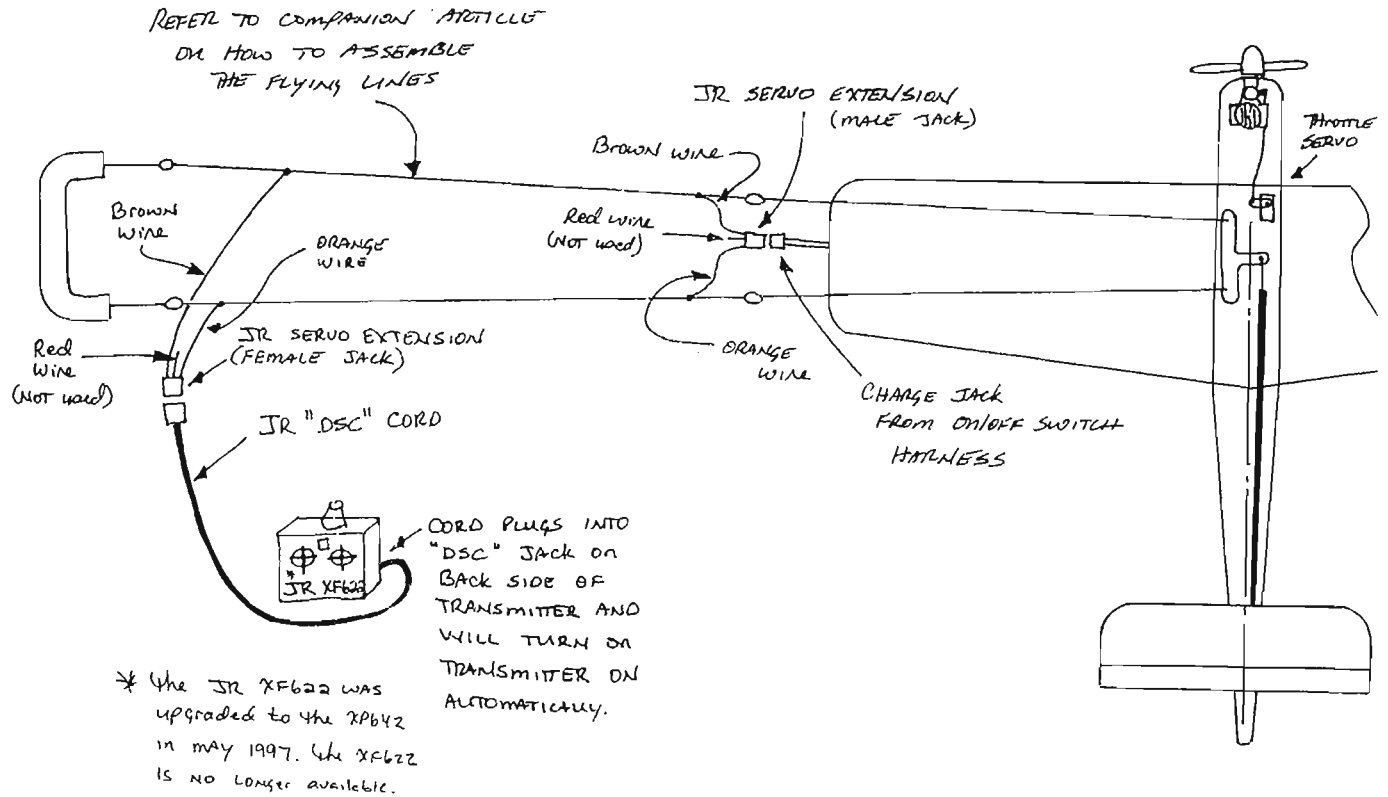 REFER TO COMPANION ARTICLE
ON HOW TO ASSEMBLE
THE FLYING LINES
JR SERVO EXTENSION
(MALE JACK)
THROTTLE
SERVO
BROWN WIRE
BROWN
WIRE
ORANGE
WIRE
Red wire
(NOT used)
JR SERVO EXTENSION
(FEMALE JACK)
Red
Wire
(NOT used)
ORANGE
WIRE
CHARGE JACK
FROM ON/OFF SWITCH
HARNESS
JR "DSC" CORD
* JR XF622
CORD PLUGS INTO
"DSC" JACK ON
BACK SIDE OF
TRANSMITTER AND
WILL TURN ON
TRANSMITTER ON
AUTOMATICALLY.
* The JR XF622 WAS
upgraded to the XP642
in MAY 1997. The XF622
IS NO LONGER available.